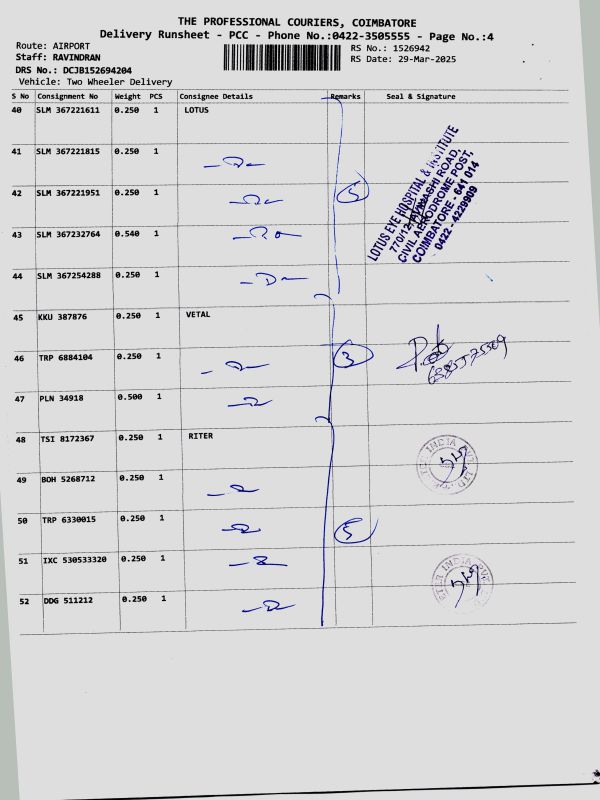 THE PROFESSIONAL COURIERS, COIMBATORE
Delivery Runsheet - PCC - Phone No.:0422-3505555 - Page No.:4
Route: AIRPORT
RS No.: 1526942
Staff: RAVINDRAN
RS Date: 29-Mar-2025
DRS No.: DCJB152694204
Vehicle: Two Wheeler Delivery
S No Consignment No Weight PCS Consignee Details Remarks Seal & Signature
40 SLM 367221611 0.250 1 LOTUS
41 SLM 367221815 0.250 1
42 SLM 367221951 0.250 1 5
43 SLM 367232764 0.540 1
44 SLM 367254288 0.250 1
LOTUS EYE HOSPITAL & INSTITUTE
770/12, AVINASHI ROAD,
CIVIL AERODROME POST,
COIMBATORE - 641 014
0422 - 4229909
45 KKU 387876 0.250 1 VETAL
46 TRP 6884104 0.250 1 3
47 PLN 34918 0.500 1
48 TSI 8172367 0.250 1 RITER
49 BOH 5268712 0.250 1
50 TRP 6330015 0.250 1 5
51 IXC 530533320 0.250 1
52 DDG 511212 0.250 1